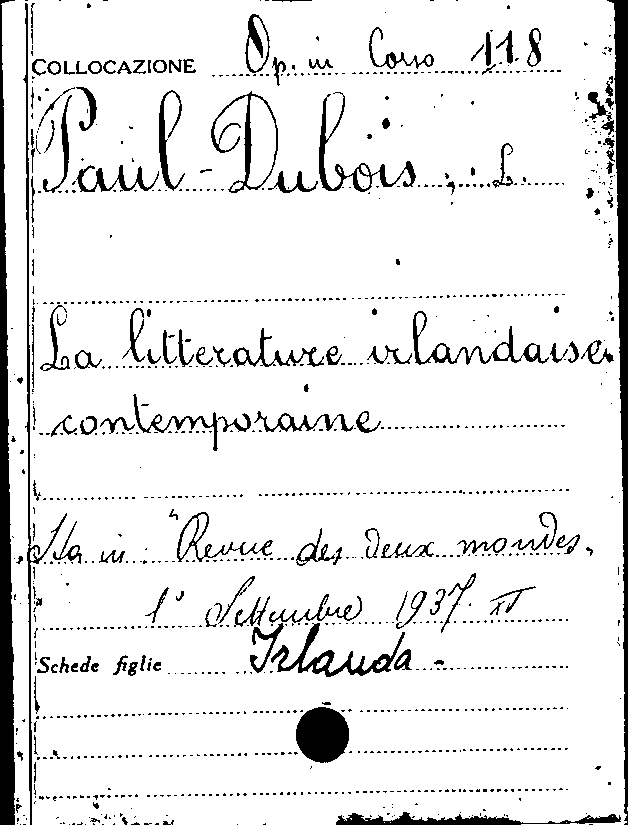 COLLOCAZIONE Op. in Corso 118
Paul-Dubois, L.
La litterature irlandaise
contemporaine
Sta in: "Revue des deux mondes,
1° Settembre 1937. XV
Schede figlie Irlanda -